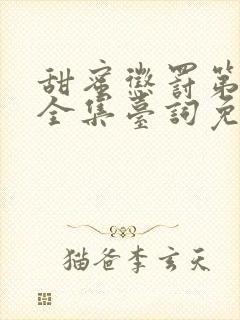 甜蜜懲罰第
全集臺詞免
猫爸李玄天